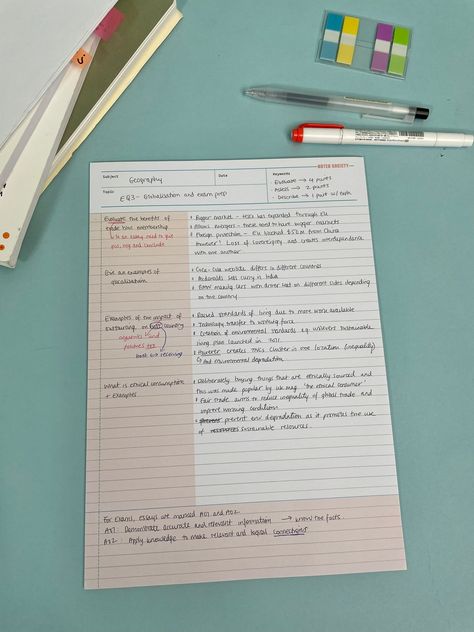 OUTER SOCIETY
Subject Geography
Date
Keywords
Topic EQ3 - Globalisation and exam prep
Evaluate → 4 parts
Assess → 2 parts
Describe → 1 part
Evaluate the benefits of
membership
Bigger market - has expanded through EU
Allows mergers - these need to have bigger markets
Foreign protection - EU from China
However! Loss of sovereignty and creates interdependence
with one another
Give an examples of
glocalisation
Coca-Cola website differs in different countries
McDonalds sells curry in India
making cars with driver seat on different sides depending
on the country.
Examples of the impact of
outsourcing on host country
negatives and
positives
host → receiving
Raised standards of living due to more work available
Technology transfer to working force
Creation of environmental standards e.g. unilever sustainable
living plan launched in
However creates TNCs cluster in one location (inequality)
And environmental degradation.
What is ethical consumption
+ Examples
Deliberately buying things that are ethically sourced and
this was made popular by uk mag. 'the ethical consumer'
Fair trade aims to reduce inequality of global trade and
improve working condition
prevent env degradation as it promotes the use
of resources sustainable resources.
For Exams, essays are marked AO1 and AO2.
AO1: Demonstrate accurate and relevant information → know the facts
AO2: Apply knowledge to make relevant and logical connections